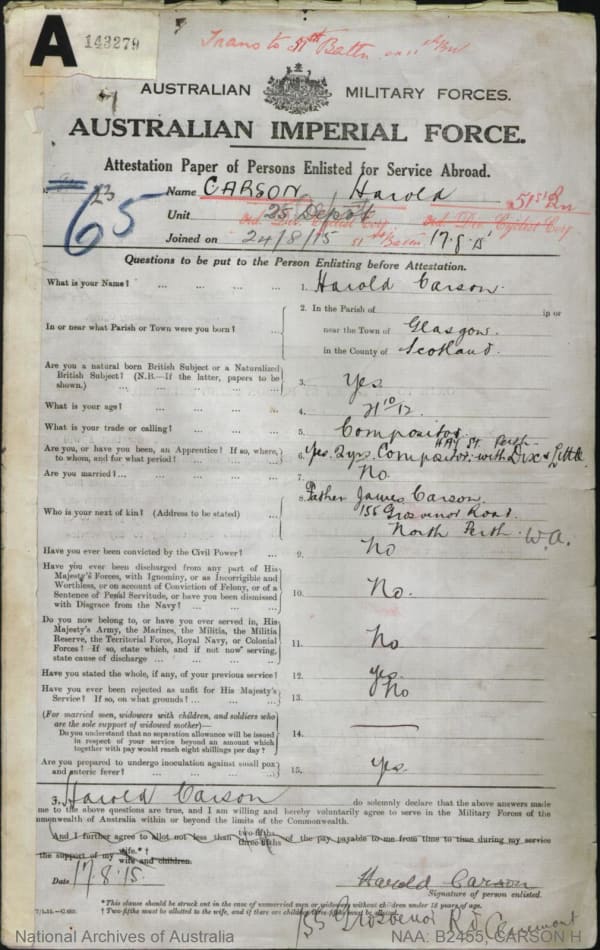 A 143279
Trans to 51st Battn
AUSTRALIAN MILITARY FORCES.
AUSTRALIAN IMPERIAL FORCE.
Attestation Paper of Persons Enlisted for Service Abroad.
23
65
Name CARSON, Harold 51st Bn
Unit 25 Depot
2nd Div. Cyclist Coy 2nd Div. Cyclist Coy
Joined on 24/8/15 51st Battn 17.8.15
Questions to be put to the Person Enlisting before Attestation.
What is your Name? ... ... ... ... 1. Harold Carson.
In or near what Parish or Town were you born? ... 2. In the Parish of in or
near the Town of Glasgow.
in the County of Scotland.
Are you a natural born British Subject or a Naturalized
British Subject? (N.B.—If the latter, papers to be
shown.) ... ... ... ... 3. Yes
What is your age? ... ... ... ... 4. 21 10/12.
What is your trade or calling? ... ... ... 5. Compositor.
Are you, or have you been, an Apprentice? If so, where,
to whom, and for what period? ... ... ... 6. Yes. 2 yrs. Compositor. with Dix & Little Hay St. Perth
Are you married?... ... ... ... 7. No.
Who is your next of kin? (Address to be stated) ... 8. Father James Carson.
155 Grosvenor Road.
North Perth. W.A.
Have you ever been convicted by the Civil Power? ... 9. No
Have you ever been discharged from any part of His
Majesty's Forces, with Ignominy, or as Incorrigible and
Worthless, or on account of Conviction of Felony, or of a
Sentence of Penal Servitude, or have you been dismissed
with Disgrace from the Navy? ... ... ... 10. No.
Do you now belong to, or have you ever served in, His
Majesty's Army, the Marines, the Militia, the Militia
Reserve, the Territorial Force, Royal Navy, or Colonial
Forces? If so, state which, and if not now serving,
state cause of discharge ... ... ... 11. No
Have you stated the whole, if any, of your previous service? 12. yes.
Have you ever been rejected as unfit for His Majesty's
Service? If so, on what grounds? ... ... ... 13. No
(For married men, widowers with children, and soldiers who
are the sole support of widowed mother)—
Do you understand that no separation allowance will be issued
in respect of your service beyond an amount which
together with pay would reach eight shillings per day? 14.
Are you prepared to undergo inoculation against small pox
and enteric fever? ... ... ... ... 15. yes.
I, Harold Carson do solemnly declare that the above answers made
me to the above questions are true, and I am willing and hereby voluntarily agree to serve in the Military Forces of the
mmonwealth of Australia within or beyond the limits of the Commonwealth.
And I further agree to allot not less than two-fifths three-fifths of the pay payable to me from time to time during my service
the support of my wife.*† wife and children.
Date 17.8.15
Harold Carson
Signature of person enlisted.
*This clause should be struck out in the case of unmarried men or widowers without children under 18 years of age.
†Two-fifths must be allotted to the wife, and if there are children three-fifths must be allotted.
155 Grosvenor Rd Claremont
National Archives of Australia NAA: B2455, CARSON H